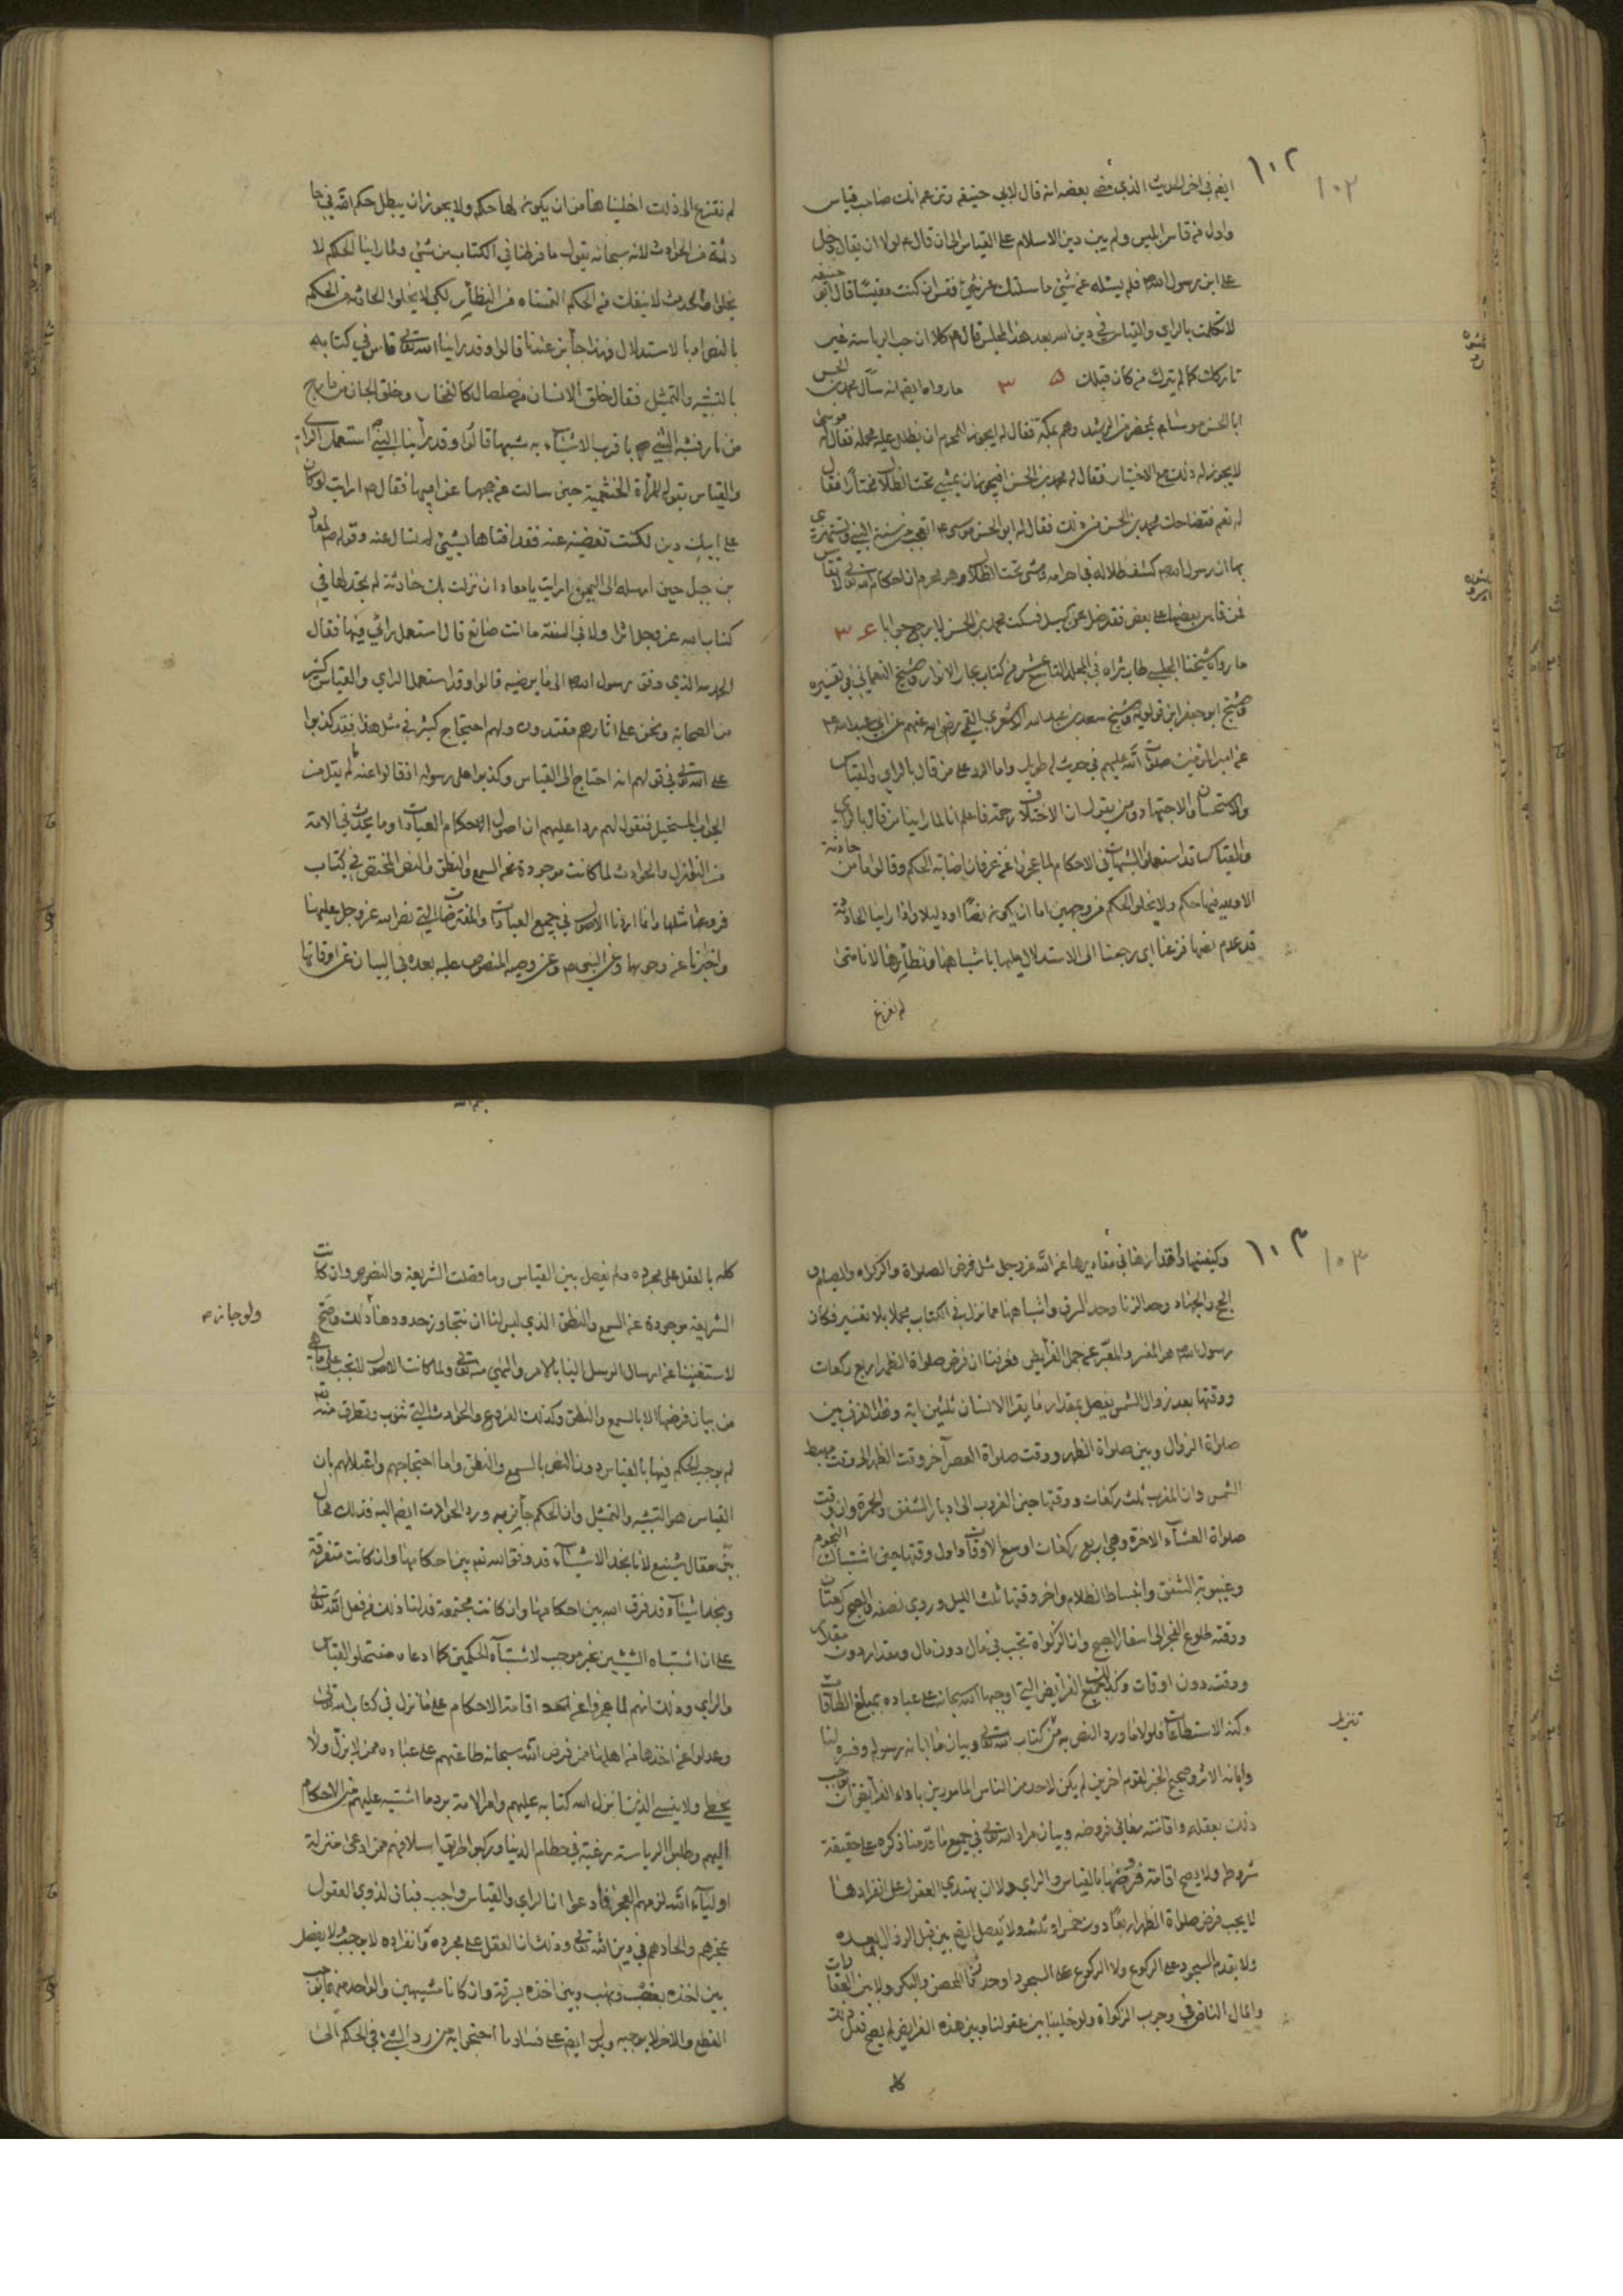 ١٠٢
١٠٢
ايضم في اخر الحديث الذي مضى بعضه انه قال لابي حنيفه وتزعم انك صاحب قياس
واول من قاس ابليس ولم يبن دين الاسلام على القياس الى ان قال م لولا ان يقال دخل
على ابن رسول الله ص فلم يسئله عن شئ ما سئلتك عن شئ فقس ان كنت مقيسا قال ابو حنيفه
لا تكلمت بالراي والقياس في دين الله بعد هذا المجلس قال م كلا ان حب الرياسة غير
تاركك كما لم يترك من كان قبلك ٣٥ ما رواه ايضم انه سأل محمد بن الحسن
ابا الحسن موسى م بمحضر من الرشيد وهم بمكة فقال له ايجوز للمحرم ان يظلل عليه محمله فقال له موسى
لا يجوز له ذلك مع الاختيار فقال له محمد بن الحسن افيجوز ان يمشي تحت الظلال مختارا فقال
له نعم فتضاحك محمد بن الحسن من ذلك فقال له ابو الحسن موسى م اتعجب من سنة النبي وتستهزئ
بها ان رسول الله ص كشف ظلاله في احرامه ومشى تحت الظلال وهو محرم ان احكام الله تعالى لا تقاس
فمن قاس بعضها على بعض فقد ضل عن السبيل فسكت محمد بن الحسن لا يرجع جوابا ٣٦
ما رواه شيخنا المجلسي طاب ثراه في المجلد التاسع عشر من كتاب بحار الانوار والشيخ النعماني في تفسيره
والشيخ ابو جعفر ابن قولويه والشيخ سعد بن عبد الله الاشعري القمي رضي الله عنهم عن ابي عبد الله م
عن امير المؤمنين صلوات الله عليهم في حديث له طويل واما الرد على من قال بالراي والقياس
والاستحسان والاجتهاد ومن يقول ان الاختلاف رحمة فاعلم انا لما راينا من قال بالراي
والقياس قد استعملوا الشبهات في الاحكام لما عجزوا عن عرفان اصابة الحكم وقالوا ما من حادثة
الا ولله فيها حكم ولا يخلو الحكم من وجهين اما ان يكون نصا او دليلا واذا راينا الحادثة
قد عدم نصها فزعنا اي رجعنا الى الاستدلال عليها باشباهها ونظائرها لانا متى
لم نفزع
لم نفزع الى ذلك اخليناها من ان يكون لها حكم ولا يجوز ان يبطل حكم الله في حا
دثة من الحوادث لانه سبحانه يقول ما فرطنا في الكتاب من شئ ولما راينا الحكم لا
يخلوا والحدث لا ينفك من الحكم التمسناه من النظائر لكي لا يخلوا الحادثة من الحكم
بالنص او بالاستدلال وهذا جائز عندنا قالوا وقد راينا الله تعالى قاس في كتابه
بالتشبيه والتمثيل فقال خلق الانسان من صلصال كالفخار وخلق الجان من مارج
من نار فشبه الشئ م باقرب الاشياء به شبها قالوا وقد راينا النبي ص استعمل الراي
والقياس بقوله للمرأة الخثعمية حين سالت عن حجها عن ابيها فقال ص ارايت لو كان
على ابيك دين لكنت تقضينه عنه فقد افتاها بشئ لم تسال عنه وقوله ص لمعاذ
بن جبل حين ارسله الى اليمن ارايت يا معاذ ان نزلت بك حادثة لم تجد لها في
كتاب الله عز وجل اثرا ولا في السنة ما انت صانع قال استعمل رائي فيها فقال
الحمد لله الذي وفق رسول الله ص الى ما يرضيه قالوا وقد استعمل الراي والقياس كثير
من الصحابة ونحن على اثارهم مقتدون ولهم احتجاج كثير في مثل هذا فقد كذبوا
على الله تعالى في قولهم انه احتاج الى القياس وكذبوا على رسوله اذ قالوا عنه ما لم يقل من
الجواب المستحيل فنقول لهم ردا عليهم ان اصول الاحكام العبادات وما يحدث في الامة
من النوازل والحوادث لما كانت موجودة عن السمع والنطق والنص المختص في كتاب
فروعها مثلها وانما اردنا الاصول في جميع العبادات والمفترضات التي نص الله عز وجل عليها
واخبرنا عن وجوبها وعن النبي ص وعن وصيه المنصوص عليه بعده في البيان عن اوقاتها
١٠٣
١٠٣
وكيفيتها واقدارها في مقاديرها عن الله عز وجل مثل فرض الصلواة والزكواة والصيام و
الحج والجهاد وحد الزنا وحد السرقة واشباهها مما نزل في الكتاب مجملا بلا تفسير فكان
رسول الله ص هو المفسر والمعبر عن جمل الفرايض فعرفنا ان فرض صلواة الظهر اربع ركعات
ووقتها بعد زوال الشمس يفصل بمقدار ما يقرا الانسان ثلثين اية وهذا الفرق بين
صلواة الزوال وبين صلواة الظهر ووقت صلواة العصر آخر وقت الظهر الى وقت مهبط
الشمس وان المغرب ثلث ركعات ووقتها حين الغروب الى ادبار الشفق والحمرة وان وقت
صلواة العشاء الاخرة وهي اربع ركعات اوسع الاوقات واول وقتها حين اشتباك النجوم
وغيبوبة الشفق وانبساط الظلام واخر وقتها ثلث الليل وروي نصفه والصبح ركعتان
ووقته طلوع الفجر الى اسفار الصبح وان الزكواة تجب في مال دون مال ومقدار دون مقدار
ووقت دون اوقات وكذلك جميع الفرايض التي اوجبها الله سبحانه على عباده بمبلغ الطاقات
وكنه الاستطاعات فلولا ما ورد النص به من كتاب الله تعالى وبيان ما ابانه رسوله وفسره لنا
وابانه الاثر وصحيح الخبر لقوم اخرين لم يكن لاحد من الناس المامورين باداء الفرايض ان يوجب
ذلك بعقله واقامته معاني فروضه وبيان مراد الله تعالى في جميع ما قدمنا ذكره على حقيقة
شروطه ولا يصح اقامة فروضها بالقياس والراي ولا ان يهتدي العقول على انفرادها
لا يجب فرض صلواة الظهر اربعا دون خمس او ثلث ولا يفصل ايضم بين قبل الزوال وبعده
ولا تقدم السجود على الركوع ولا الركوع على السجود او حد زنا المحصن والبكر ولا بين العقارات
والمال الناض في وجوب الزكواة ولو خلينا بين عقولنا وبين هذه الفرايض لم يصح فعل ذلك
كله
كله بالعقل على مجرده ولم يفصل بين القياس وما فصلت الشريعة والنصوص وان كانت
الشريعة موجودة عن السمع والنطق الذي ليس لنا ان نتجاوز حدودها ذلك وصح
ولو جاز م
لاستغنينا عن ارسال الرسل الينا بالامر والنهي منه تعالى ولما كانت الاصول لا تجب على ما هي
من بيان فرضها الا بالسمع والنطق وكذلك الفروع والحوادث التي تنوب وتطرق منه تعالى
لم يوجب الحكم فيها بالقياس دون النص بالسمع والنطق واما احتجاجهم واعتلالهم بان
القياس هو التشبيه والتمثيل وان الحكم جائز به ورد الحوادث ايضم اليه فذلك محال
بين مقال شنيع لانا نجد الاشياء قد وفق الله تعم بين احكامها وان كانت متفرقة
ونجد اشياء قد فرق الله بين احكامها وان كانت مجتمعة فدلنا ذلك من فعل الله تعالى
على ان اشتباه الشيئين غير موجب لاشتباه الحكمين كما ادعاه منتحلوا القياس
والراي وذلك انهم لما عجزوا عن اقامة الاحكام على ما نزل في كتاب الله تعالى
وعدلوا عن اخذها من اهلها ممن فرض الله سبحانه طاعتهم على عباده ممن لا يزل ولا
يخطي ولا ينسى الذين انزل الله كتابه عليهم وامر الامة برد ما اشتبه عليهم من الاحكام
اليهم وطلبوا الرياسة رغبة في حطام الدنيا وركبوا طريق اسلافهم ممن ادعى منزلة
اولياء الله لزمهم العجز فادعوا ان الراي والقياس واجب فبان لذوي العقول
عجزهم والحادهم في دين الله تعالى وذلك ان العقل على مجرده وانفراده لا يوجب ولا يفصل
بين اخذه بغصب ونهب وبين اخذه بسرقة وان كانا مشبهين والواحد منهما يوجب
القطع والاخر لا يوجبه ويدل ايضم على فساد ما احتجوا به من رد الشئ في الحكم الى